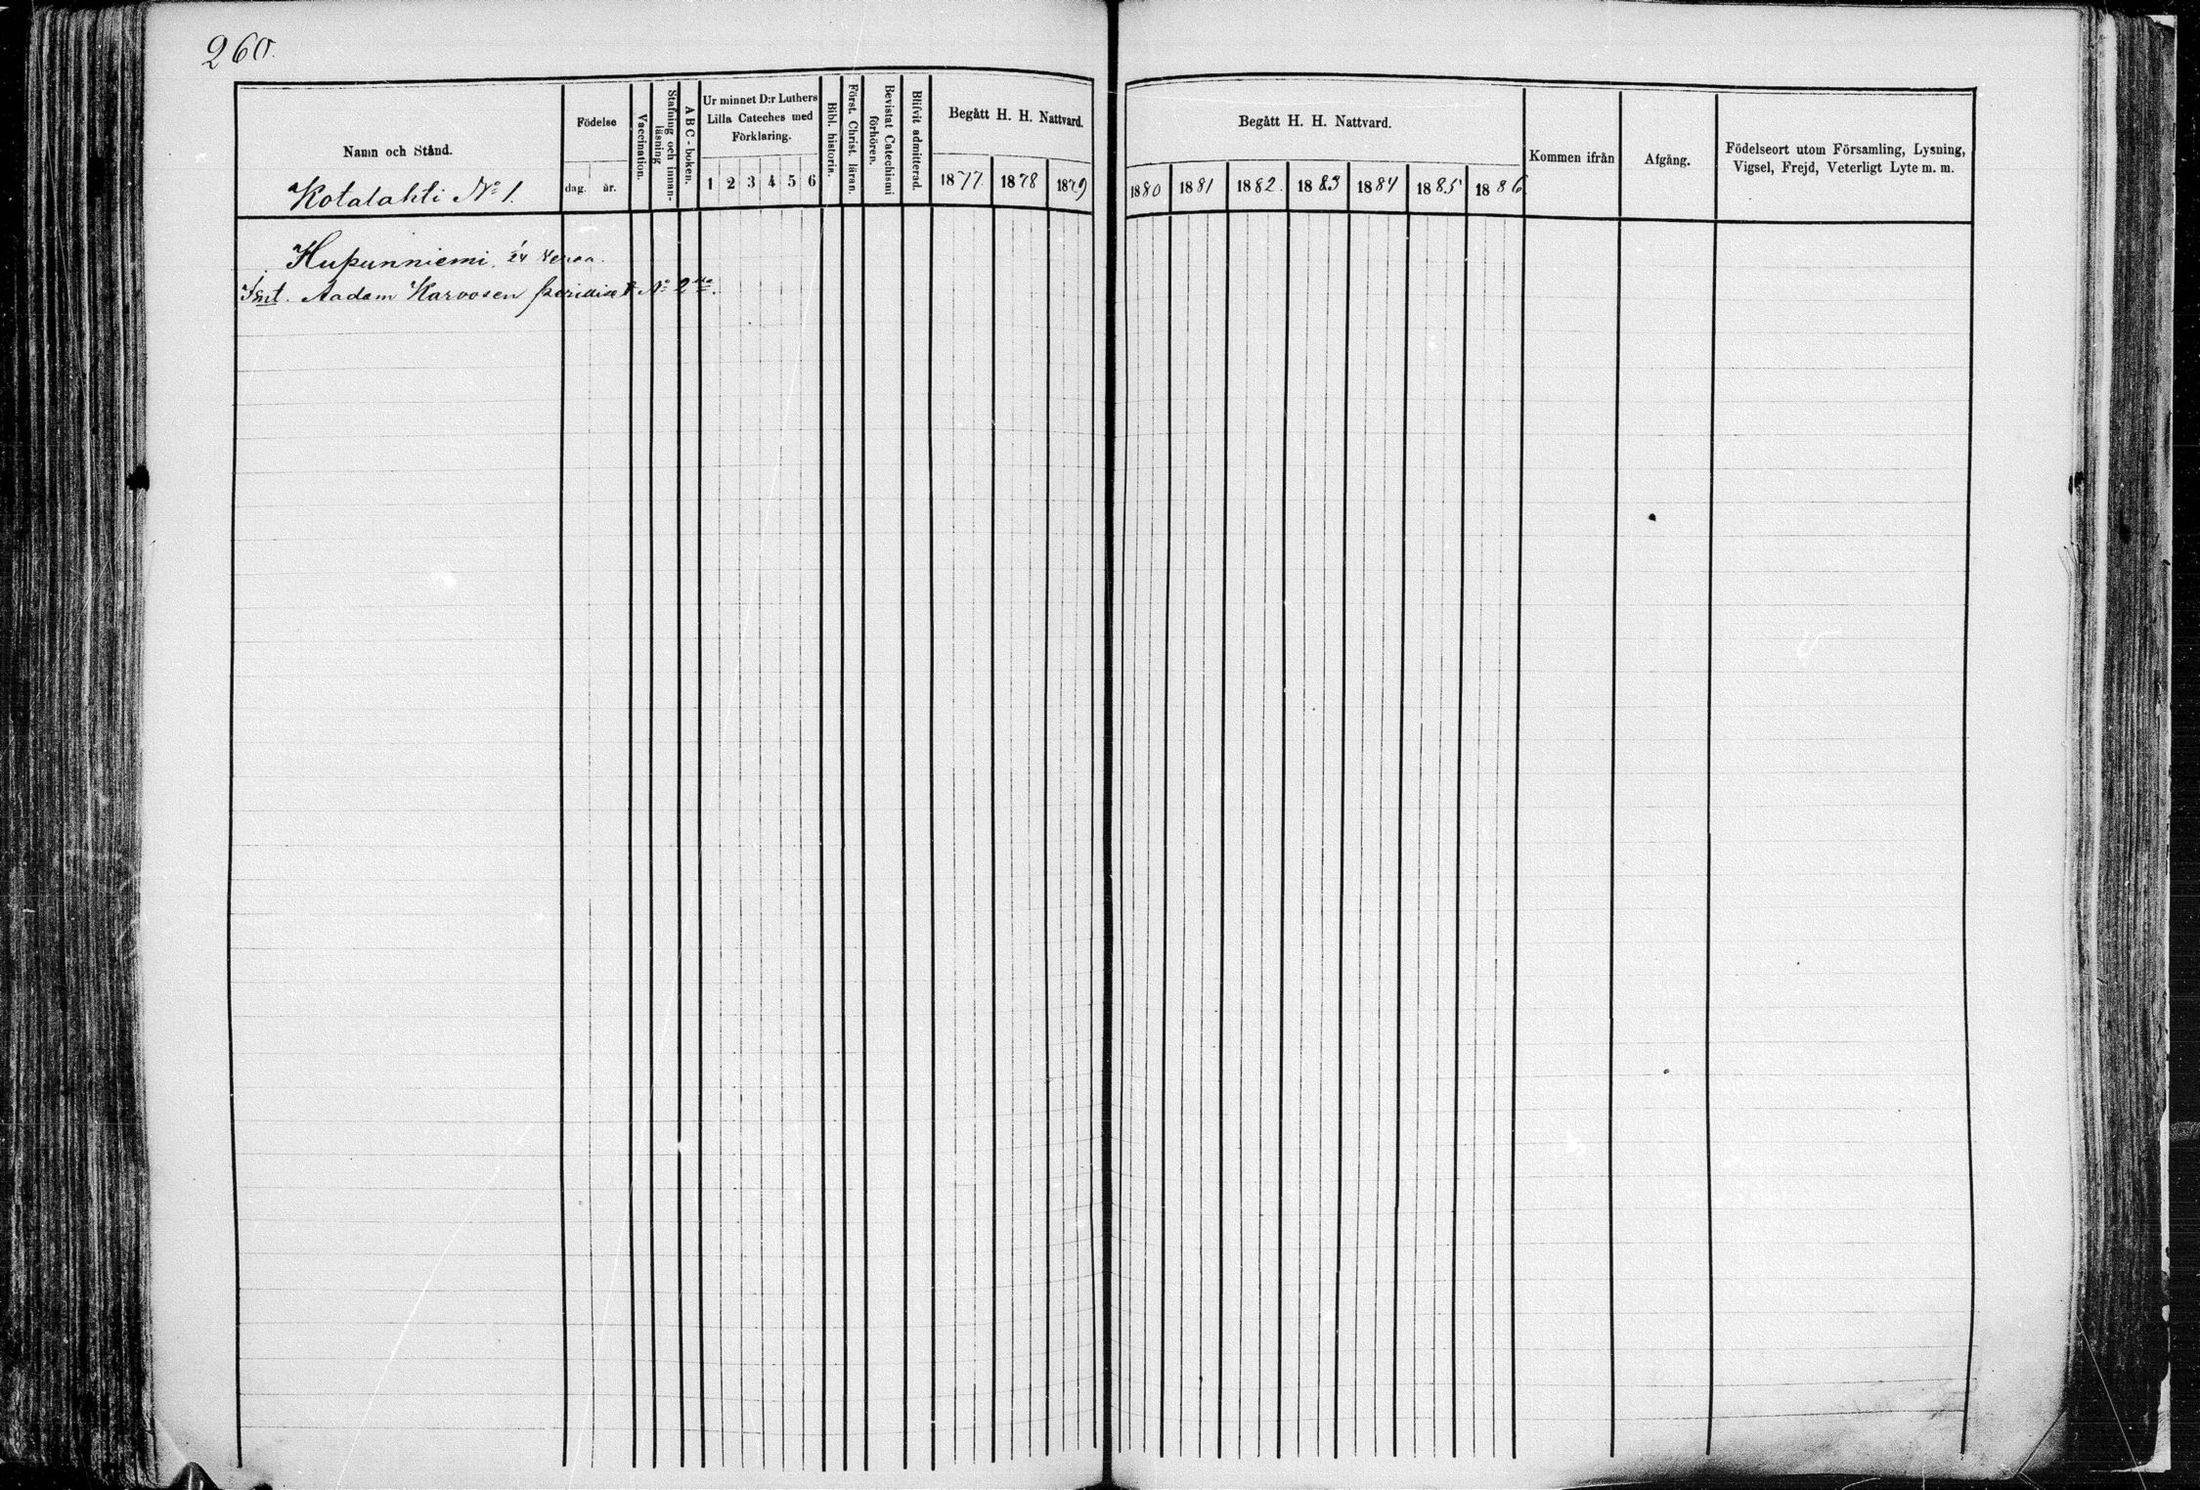 260.
Namn och Stånd.
Kotalahti No 1.
Födelse
dag. år.
Vaccination.
Stafning och innan-
läsning
A B C - boken.
Ur minnet D:r Luthers
Lilla Cateches med
Förklaring.
1 2 3 4 5 6
Bibl. historia.
Först. Christ. läran.
Bevistat Catechismi
förhören.
Blifvit admitterad.
Begått H. H. Nattvard.
1877. 1878 1879
Begått H. H. Nattvard.
1880 1881 1882. 1883 1884 1885 1886
Kommen ifrån
Afgång.
Födelseort utom Församling, Lysning,
Vigsel, Frejd, Veterligt Lyte m. m.
Hupunniemi.
Aadam Karvosen No 2